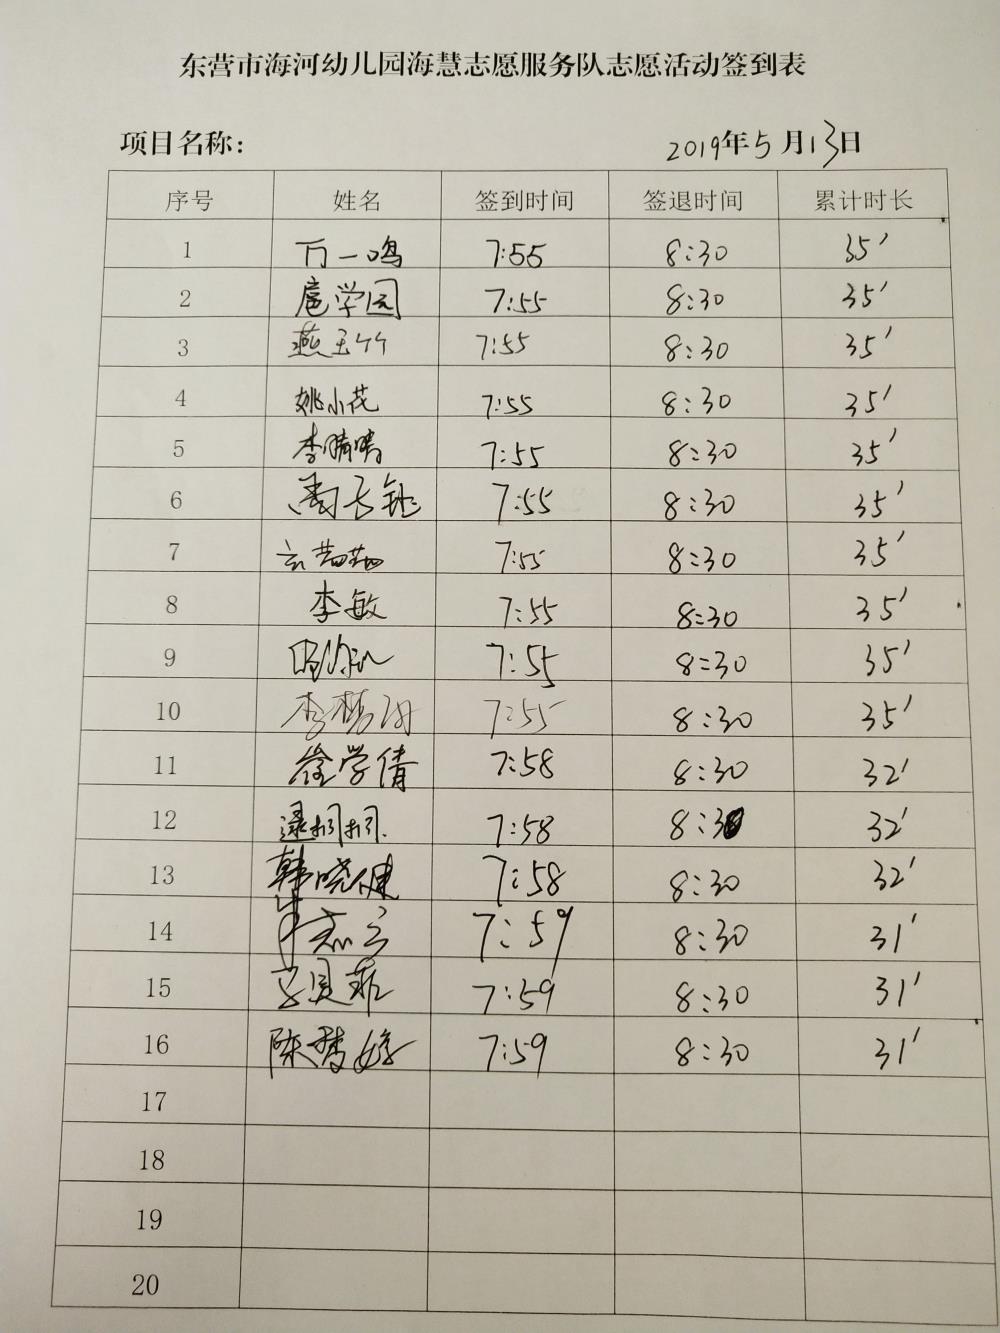 东营市海河幼儿园海慧志愿服务队志愿活动签到表
项目名称: 2019年5月13日
序号 姓名 签到时间 签退时间 累计时长
1 万一鸣 7:55 8:30 35'
2 扈学园 7:55 8:30 35'
3 燕玉竹 7:55 8:30 35'
4 姚小花 7:55 8:30 35'
5 李晴晴 7:55 8:30 35'
6 7:55 8:30 35'
7 7:55 8:30 35'
8 李敏 7:55 8:30 35'
9 7:55 8:30 35'
10 李梦 7:55 8:30 35'
11 徐学倩 7:58 8:30 32'
12 逯桐桐. 7:58 8:30 32'
13 韩晓健 7:58 8:30 32'
14 7:59 8:30 31'
15 贝菲 7:59 8:30 31'
16 陈梦婷 7:59 8:30 31'
17
18
19
20